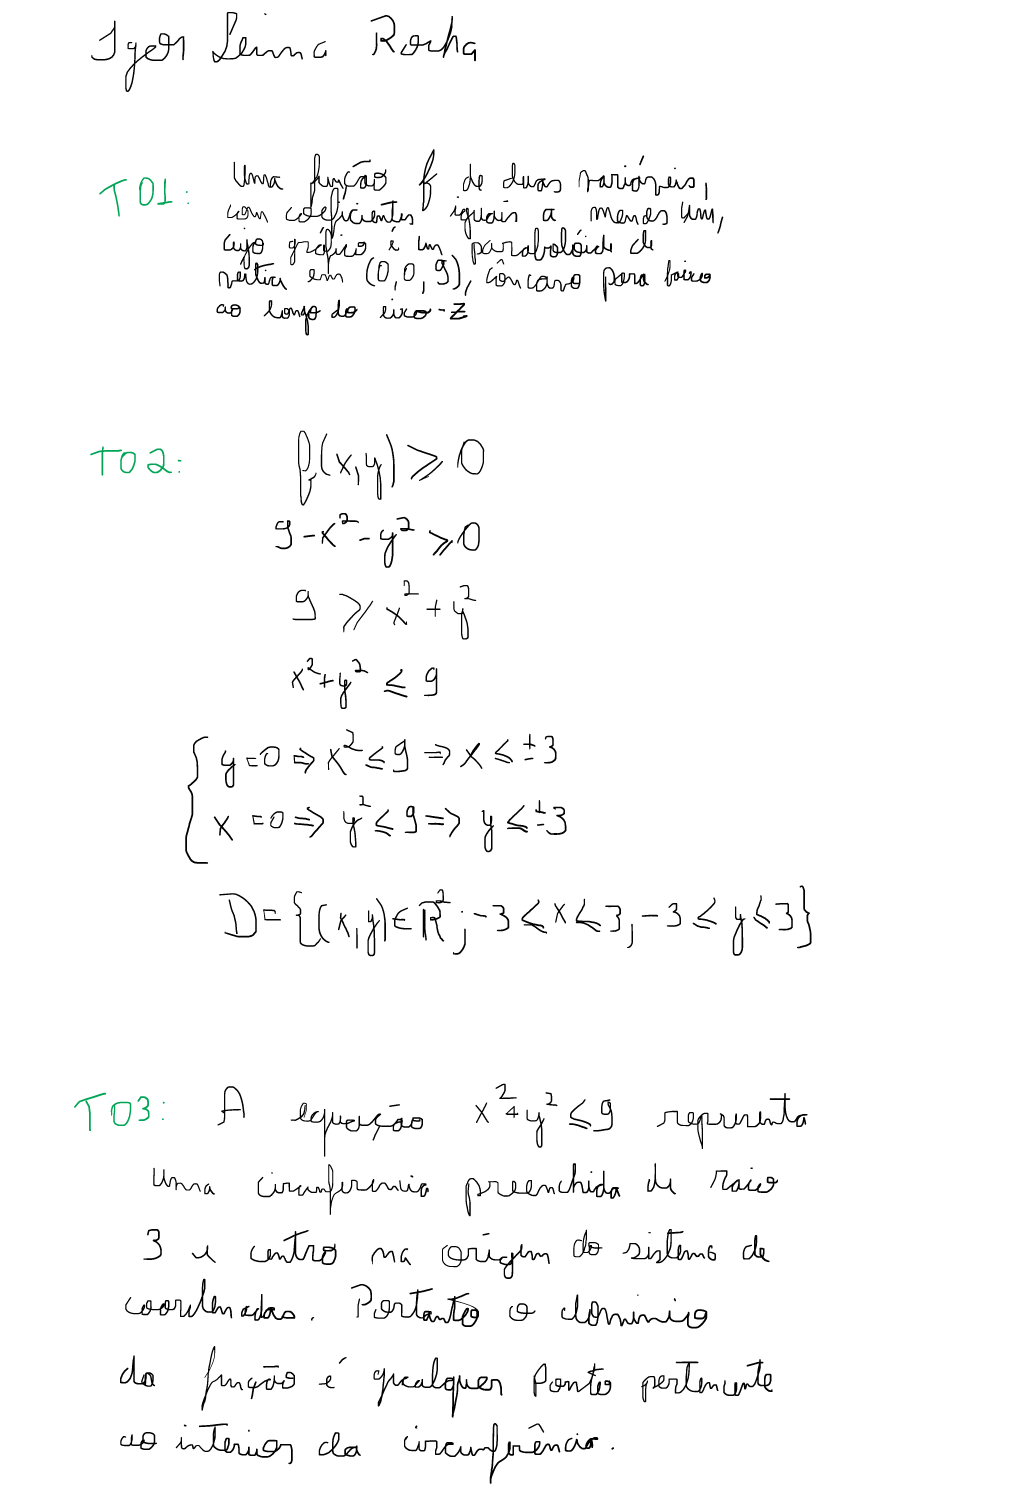 Igor Leima Rocha
T01: Uma função f de duas variáveis,
com coeficientes iguais a menos um,
cujo gráfico é um parabolóide de
vértice em (0,0,9), côncavo para baixo
ao longo do eixo-z
T02: f(x,y) ⩾ 0
9-x²-y² ⩾ 0
9 ⩾ x²+y²
x²+y² ⩽ 9
{ y=0 ⇒ x² ⩽ 9 ⇒ x ⩽ ±3
x=0 ⇒ y² ⩽ 9 ⇒ y ⩽ ±3
D={(x,y)∈R²;-3⩽x⩽3,-3⩽y⩽3}
T03: A equação x²+y²⩽9 representa
uma circunferencia preenchida de raio
3 e centro na origem do sistema de
coordenadas. Portanto o domínio
da função é qualquer ponto pertencente
ao interior da circunferência.